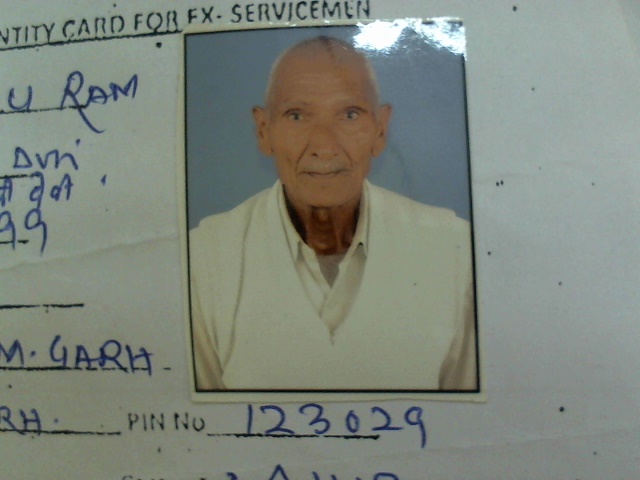 NTITY CARD FOR EX- SERVICEMEN
U RAM
Dvri
99
M. GARH
RH. PIN No 123029